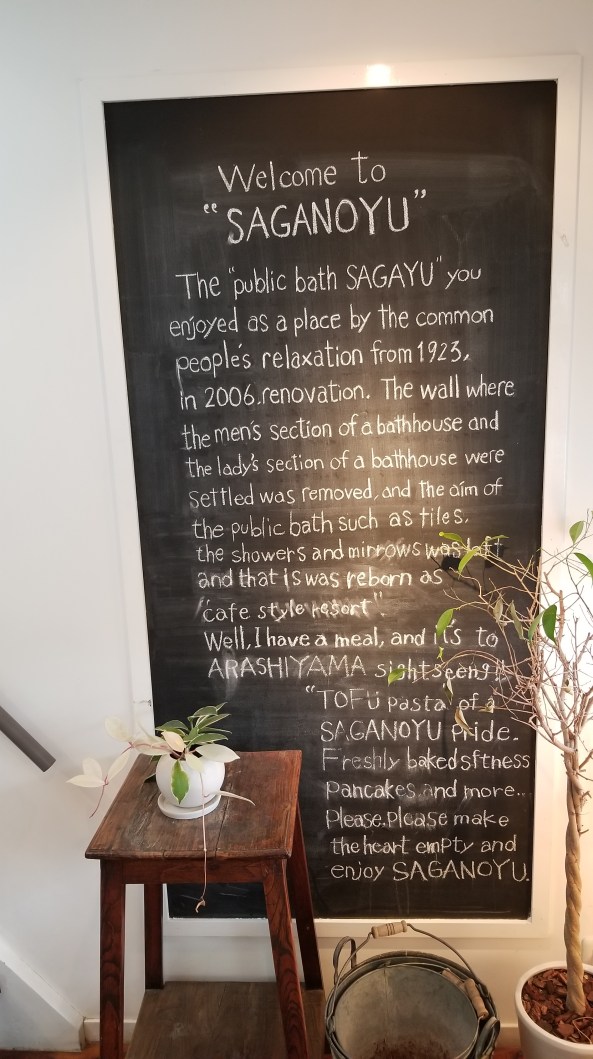 Welcome to
"SAGANOYU"
The "public bath SAGAYU" you
enjoyed as a place by the common
people's relaxation from 1923,
in 2006.renovation. The wall where
the men's section of a bathhouse and
the lady's section of a bathhouse were
settled was removed, and the aim of
the public bath such as tiles,
the showers and mirrows was left
and that is was reborn as
"cafe style resort".
Well, I have a meal, and it's to
ARASHIYAMA sightseeng!
"TOFU pasta of a
SAGANOYU pride.
Freshly baked sftness
pancakes and more..
Please.Please make
the heart empty and
enjoy SAGANOYU.